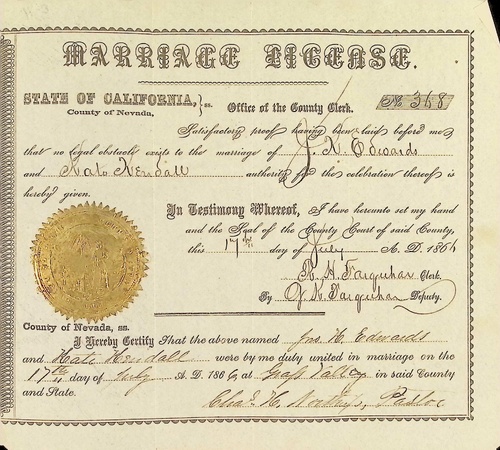 MARRIAGE LICENSE.
STATE OF CALIFORNIA, } ss. Office of the County Clerk. No. 368
County of Nevada,
Satisfactory proof having been laid before me
that no legal obstacle exists to the marriage of J. H. Edwards
and Kate Kendall authority for the celebration thereof is
hereby given.
In Testimony Whereof, I have hereunto set my hand
and the Seal of the County Court of said County,
this 17th day of July A. D. 186
R. H. Farquhar Clerk.
By J. K. Farquhar Deputy.
County of Nevada, ss.
I Hereby Certify That the above named Jno. H. Edwards
and Kate Kendall were by me duly united in marriage on the
17th day of July A. D. 186 at Grass Valley in said County
and State.
Chas. H. Pastor